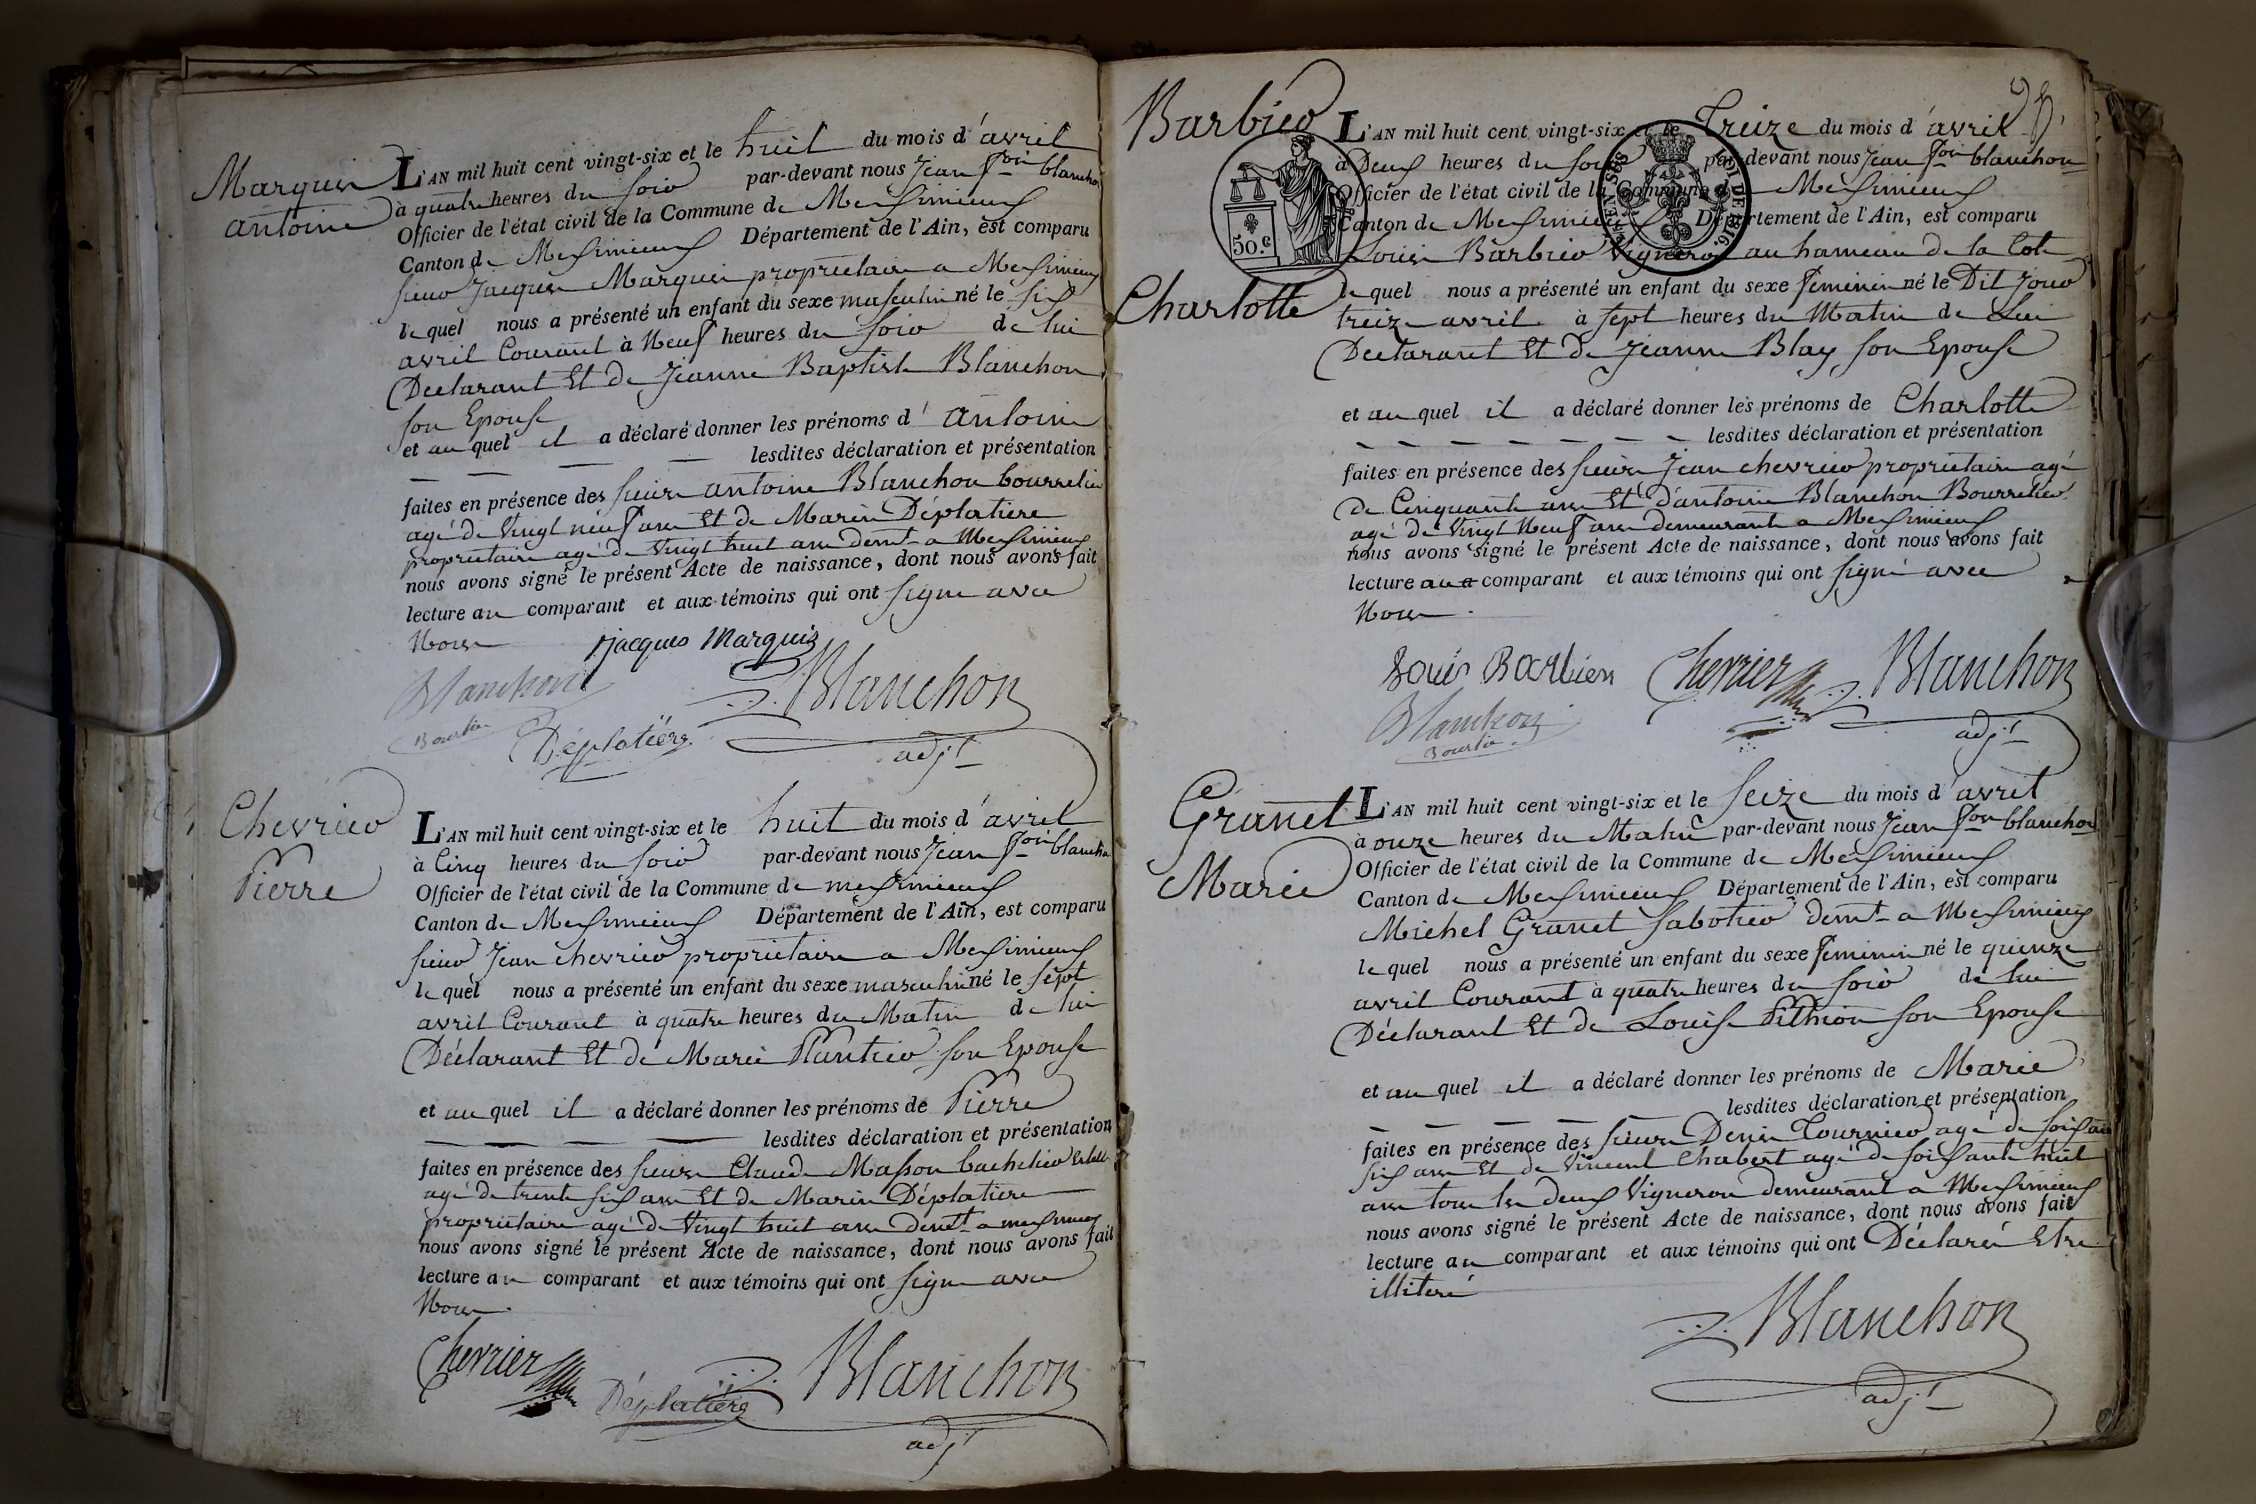 Marquis
Antoine
L'AN mil huit cent vingt-six et le huit du mois d'avril
à quatre heures du soir par-devant nous Jean fois blanchon
Officier de l'état civil de la Commune de Meximieux
Canton de Meximieux Département de l'Ain, est comparu
sieur Jacques Marquis propriétaire a Meximieux
le quel nous a présenté un enfant du sexe masculin né le six
avril Courant à Neuf heures du soir de lui
Déclarant Et de Jeanne Baptiste Blanchon
son Epouse
et au quel il a déclaré donner les prénoms d'antoine
lesdites déclaration et présentation
faites en présence des sieurs antoine Blanchon bourrelier
agé de Vingt neuf ans Et de Marin Déplatière
propriétaire agé de Vingt huit ans demt a Meximieux
nous avons signé le présent Acte de naissance, dont nous avons fait
lecture au comparant et aux témoins qui ont signé avec
Nous
jacques Marquis
Blanchon Blanchon
Bourlier Déplatière adjt
Chevrier
Pierre
L'AN mil huit cent vingt-six et le huit du mois d'avril
à Cinq heures du soir par-devant nous Jean fois blanchon
Officier de l'état civil de la Commune de meximieux
Canton de Meximieux Département de l'Ain, est comparu
sieur Jean chevrier propriétaire a Meximieux
le quel nous a présenté un enfant du sexe masculin né le sept
avril Courant à quatre heures du Matin de lui
Déclarant Et de Marie Plantier son Epouse
et au quel il a déclaré donner les prénoms de Pierre
lesdites déclaration et présentation
faites en présence des sieurs Claude Masson bachelier
agé de trente six ans Et de Marin Déplatière
propriétaire agé de Vingt huit ans demt a meximieux
nous avons signé le présent Acte de naissance, dont nous avons fait
lecture au comparant et aux témoins qui ont signé avec
Nous.
Chevrier Déplatière Blanchon
adjt
25
Barbier
Charlotte
L'AN mil huit cent vingt-six et le Treize du mois d'avril
à Deux heures du soir par-devant nous Jean fois blanchon
Officier de l'état civil de la Commune de Meximieux
Canton de Meximieux Département de l'Ain, est comparu
Louis Barbier Vigneron au hameau de la Cote
50 c
LOI DE 1816
le quel nous a présenté un enfant du sexe feminin né le Dit Jour
treize avril à sept heures du Matin de Lui
Déclarant Et de Jeanne Blay son Epouse
et au quel il a déclaré donner les prénoms de Charlotte
lesdites déclaration et présentation
faites en présence des sieurs Jean chevrier propriétaire agé
de Cinquante ans Et d'antoine Blanchon Bourrelier
agé de Vingt Neuf ans demeurants a Meximieux
nous avons signé le présent Acte de naissance, dont nous avons fait
lecture au comparant et aux témoins qui ont signé avec
Nous.
Louis Barbier Chevrier Blanchon
Blanchon adjt
Bourlier
Granet
Marie
L'AN mil huit cent vingt-six et le seize du mois d'avril
à onze heures du Matin par-devant nous Jean fois blanchon
Officier de l'état civil de la Commune de Meximieux
Canton de Meximieux Département de l'Ain, est comparu
Michel Granet sabotier demt a Meximieux
le quel nous a présenté un enfant du sexe feminin né le quinze
avril Courant à quatre heures du soir de lui
Déclarant Et de Louise Pithion son Epouse
et au quel il a déclaré donner les prénoms de Marie
lesdites déclaration et présentation
faites en présence des sieurs Denis Tournier agé de soixante
six ans Et de Vincent Chabert agé de soixante huit
ans tous les deux Vigneron demeurant a Meximieux
nous avons signé le présent Acte de naissance, dont nous avons fait
lecture au comparant et aux témoins qui ont Déclaré Etre
illiteré
Blanchon
adjt